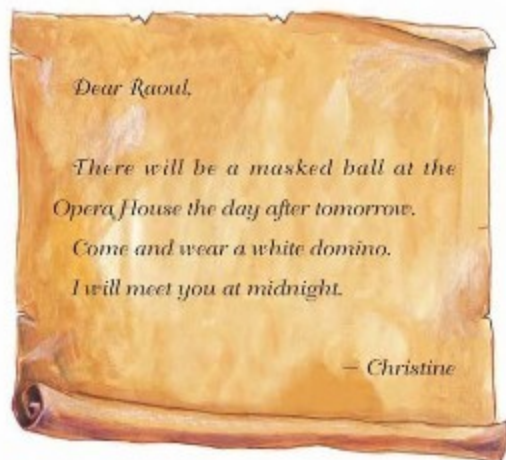 Dear Raoul,
There will be a masked ball at the
Opera House the day after tomorrow.
Come and wear a white domino.
I will meet you at midnight.
– Christine